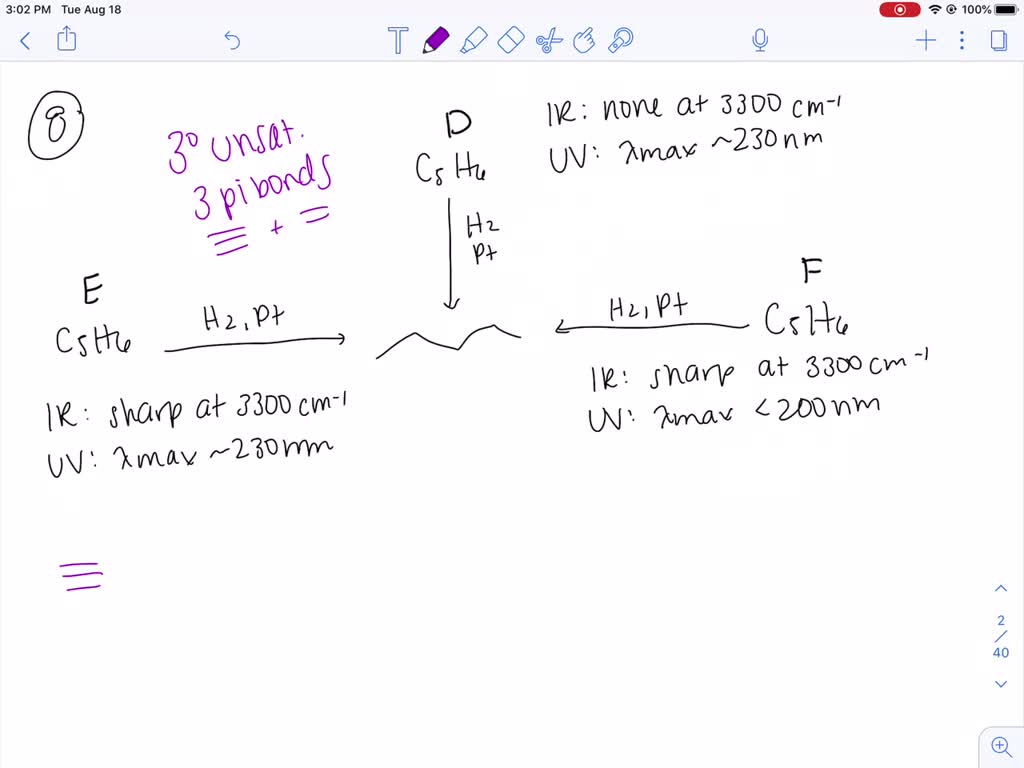 3:02 PM Tue Aug 18
100%
8
3° unsat.
3 pi bonds
≡ + =
D
C5H6
IR: none at 3300 cm-1
UV: λmax ~230nm
H2
Pt
E
C5H6
H2, Pt
IR: sharp at 3300 cm-1
UV: λmax ~230nm
F
C5H6
H2, Pt
IR: sharp at 3300 cm-1
UV: λmax <200nm
≡
2
/
40